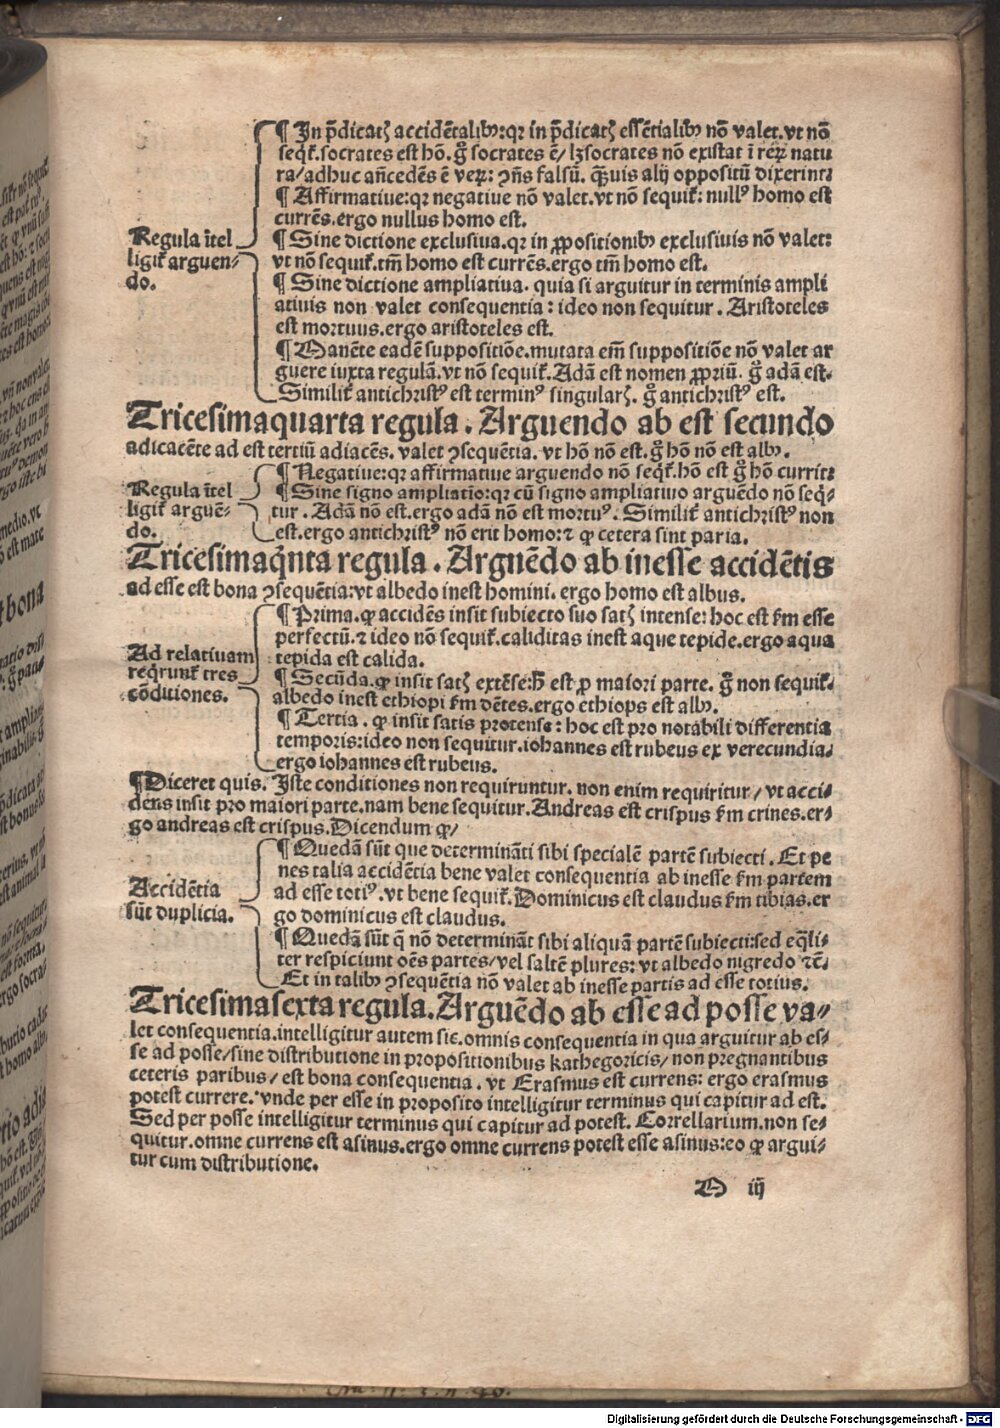 ¶ In p̃dicatꝭ accidẽtalibꝰ:qꝛ in p̃dicatꝭ essẽtialibꝰ nõ valet. vt nõ
seqť. socrates est hõ. g̊ socrates ẽ/ lꝫ socrates nõ existat ĩ reꝝ natu
ra/adhuc añcedẽs ẽ veꝝ: ꝯñs falsũ. q̃uis alij oppositũ dixerint:
¶ Affirmatiue:qꝛ negatiue nõ valet. vt nõ sequiť: nullꝰ homo est
currẽs. ergo nullus homo est.
Regula ĩtel
ligiť arguen-
do.
¶ Sine dictione exclusiua. qꝛ in ꝓpositionibꝰ exclusiuis nõ valet:
vt nõ sequiť. tm̃ homo est currẽs. ergo tm̃ homo est.
¶ Sine dictione ampliatiua. quia si arguitur in terminis ampli
atiuis non valet consequentia: ideo non sequitur. Aristoteles
est mortuus. ergo aristoteles est.
¶ Manẽte eadẽ suppositiõe. mutata em̃ suppositiõe nõ valet ar
guere iuxta regulã. vt nõ sequiť. Adã est nomen ꝓpriũ. g̊ adã est.
Similiť antichristꝰ est terminꝰ singularꝭ. g̊ antichristꝰ est.
Tricesimaquarta regula. Arguendo ab est secundo
adiacẽte ad est tertiũ adiacẽs. valet ꝯsequẽtia. vt hõ nõ est. g̊ hõ nõ est albꝰ.
¶ Negatiue:qꝛ affirmatiue arguendo nõ seqť. hõ est g̊ hõ currit:
Regula ĩtel
ligiť arguẽ-
do.
¶ Sine signo ampliatiõ:qꝛ cũ signo ampliatiuo arguẽdo nõ seq̃-
tur. Adã nõ est. ergo adã nõ est mortuꝰ. Similiť antichristꝰ non
est. ergo antichristꝰ nõ erit homo: ⁊ ꝙ cetera sint paria.
Tricesimaq̃nta regula. Arguẽdo ab inesse accidẽtis
ad esse est bona ꝯsequẽtia: vt albedo inest homini. ergo homo est albus.
Ad relatiuam
reqruntꝰ tres
cõditiones.
¶ Prima. ꝙ accidẽs insit subiecto suo satꝭ intense: hoc est ẜm esse
perfectũ. ⁊ ideo nõ sequiť. caliditas inest aque tepide. ergo aqua
tepida est calida.
¶ Secũda. ꝙ insit satꝭ extẽse: h̃ est ꝓ maiori parte. g̊ non sequiť.
albedo inest ethiopi ẜm dẽtes. ergo ethiops est albꝰ.
¶ Tertia. ꝙ insit satis protense: hoc est pro notabili differentia
temporis: ideo non sequitur. iohannes est rubeus ex verecundia.
ergo iohannes est rubeus.
¶ Diceret quis. Iste conditiones non requiruntur. non enim requiritur/ vt acci-
dens insit pro maiori parte. nam bene sequitur. Andreas est crispus ẜm crines. er-
go andreas est crispus. Dicendum ꝙ/
Accidẽtia
sũt duplicia.
¶ Quedã sũt que determinãti sibi specialẽ partẽ subiecti. Et pe
nes talia accidẽtia bene valet consequentia ab inesse ẜm partem
ad esse totiꝰ. vt bene sequiť. Dominicus est claudus ẜm tibias. er
go dominicus est claudus.
¶ Quedã sũt q̃ nõ determinãt sibi aliquã partẽ subiecti: sed eq̃li-
ter respiciunt oẽs partes/ vel saltẽ plures: vt albedo nigredo ⁊c̃.
Et in talibꝰ ꝯsequẽtia nõ valet ab inesse partis ad esse totius.
Tricesimasexta regula. Arguẽdo ab esse ad posse va-
let consequentia. intelligitur autem sic. omnis consequentia in qua arguitur ab es-
se ad posse/ sine distributione in propositionibus kathegoricis/ non pregnantibus
ceteris paribus/ est bona consequentia. vt Erasmus est currens: ergo erasmus
potest currere. vnde per esse in proposito intelligitur terminus qui capitur ad est.
Sed per posse intelligitur terminus qui capitur ad potest. Correllarium. non se-
quitur. omne currens est asinus. ergo omne currens potest esse asinus: eo ꝙ argui-
tur cum distributione.
D iij
Digitalisierung gefördert durch die Deutsche Forschungsgemeinschaft - DFG